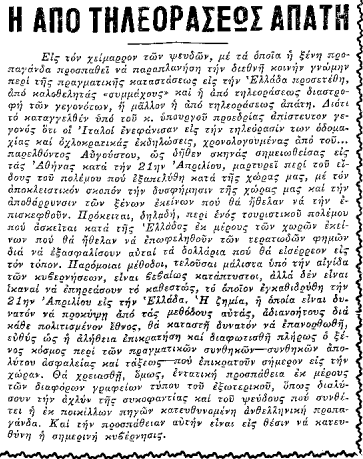 Η ΑΠΟ ΤΗΛΕΟΡΑΣΕΩΣ ΑΠΑΤΗ
Εἰς τὸν χείμαρρον τῶν ψευδῶν, μὲ τὰ ὁποῖα ἡ ξένη προ-
παγάνδα προσπαθεῖ νὰ παραπλανήση τὴν διεθνῆ κοινὴν γνώμην
περὶ τῆς πραγματικῆς καταστάσεως εἰς τὴν Ἑλλάδα προσετέθη,
ἀπὸ καλοθελητὰς «συμμάχους» καὶ ἡ ἀπὸ τηλεοράσεως διαστρο-
φὴ τῶν γεγονότων, ἢ μᾶλλον ἡ ἀπὸ τηλεοράσεως ἀπάτη. Διότι
τὸ καταγγελθὲν ὑπὸ τοῦ κ. ὑπουργοῦ προεδρίας ἀπίστευτον γε-
γονὸς ὅτι οἱ Ἰταλοὶ ἐνεφάνισαν εἰς τὴν τηλεόρασίν των ὁδομα-
χίας καὶ ὀχλοκρατικὰς ἐκδηλώσεις, χρονολογουμένας ἀπὸ τοῦ...
παρελθόντος Αὐγούστου, ὡς δῆθεν σκηνὰς σημειωθείσας εἰς
τὰς Ἀθήνας κατὰ τὴν 21ην Ἀπριλίου, μαρτυρεῖ περὶ τοῦ εἴ-
δους τοῦ πολέμου ποὺ ἐξαπελύθη κατὰ τῆς χώρας μας, μὲ τὸν
ἀποκλειστικὸν σκοπὸν τὴν δυσφήμησιν τῆς χώρας μας καὶ τὴν
ἀποθάρρυνσιν τῶν ξένων ἐκείνων ποὺ θὰ ἤθελαν νὰ τὴν ἐ-
πισκεφθοῦν. Πρόκειται, δηλαδή, περὶ ἑνὸς τουριστικοῦ πολέμου
ποὺ ἀσκεῖται κατὰ τῆς Ἑλλάδος ἐκ μέρους τῶν χωρῶν ἐκεί-
νων ποὺ θὰ ἤθελαν νὰ ἐπωφεληθοῦν τῶν τερατωδῶν φημῶν
διὰ νὰ ἐξασφαλίσουν αὐταὶ τὰ δολλάρια ποὺ θὰ εἰσέρρεον εἰς
τὸν τόπον. Παρόμοιαι μέθοδοι, τελοῦσαι μάλιστα ὑπὸ τὴν αἰγίδα
τῶν κυβερνήσεων, εἶναι βεβαίως κατάπτυστοι, ἀλλὰ δὲν εἶναι
ἱκαναὶ νὰ ἐπηρεάσουν τὸ καθεστώς, τὸ ὁποῖον ἐγκαθιδρύθη τὴν
21ην Ἀπριλίου εἰς τὴν Ἑλλάδα. Ἡ ζημία, ἡ ὁποία εἶναι δυ-
νατὸν νὰ προκύψη ἀπὸ τὰς μεθόδους αὐτάς, ἀδιανοήτους διὰ
κάθε πολιτισμένον ἔθνος, θὰ καταστῆ δυνατὸν νὰ ἐπανορθωθῆ,
εὐθὺς ὡς ἡ ἀλήθεια ἐπικρατήση καὶ διαφωτισθῆ πλήρως ὁ ξέ-
νος κόσμος περὶ τῶν πραγματικῶν συνθηκῶν—συνθηκῶν ἀπο-
λύτου ἀσφαλείας καὶ τάξεως—ποὺ ἐπικρατοῦν σήμερον εἰς τὴν
χώραν. Θὰ χρειασθῆ, ὅμως, ἐντατικὴ προσπάθεια ἐκ μέρους
τῶν διαφόρων γραφείων τύπου τοῦ ἐξωτερικοῦ, ὅπως διαλύ-
σουν τὴν ἀχλὺν τῆς συκοφαντίας καὶ τοῦ ψεύδους ποὺ συνθέ-
τει ἡ ἐκ ποικίλλων πηγῶν κατευθυνομένη ἀνθελληνικὴ προπα-
γάνδα. Καὶ τὴν προσπάθειαν αὐτὴν εἶναι εἰς θέσιν νὰ κατευ-
θύνη ἡ σημερινὴ κυβέρνησις.